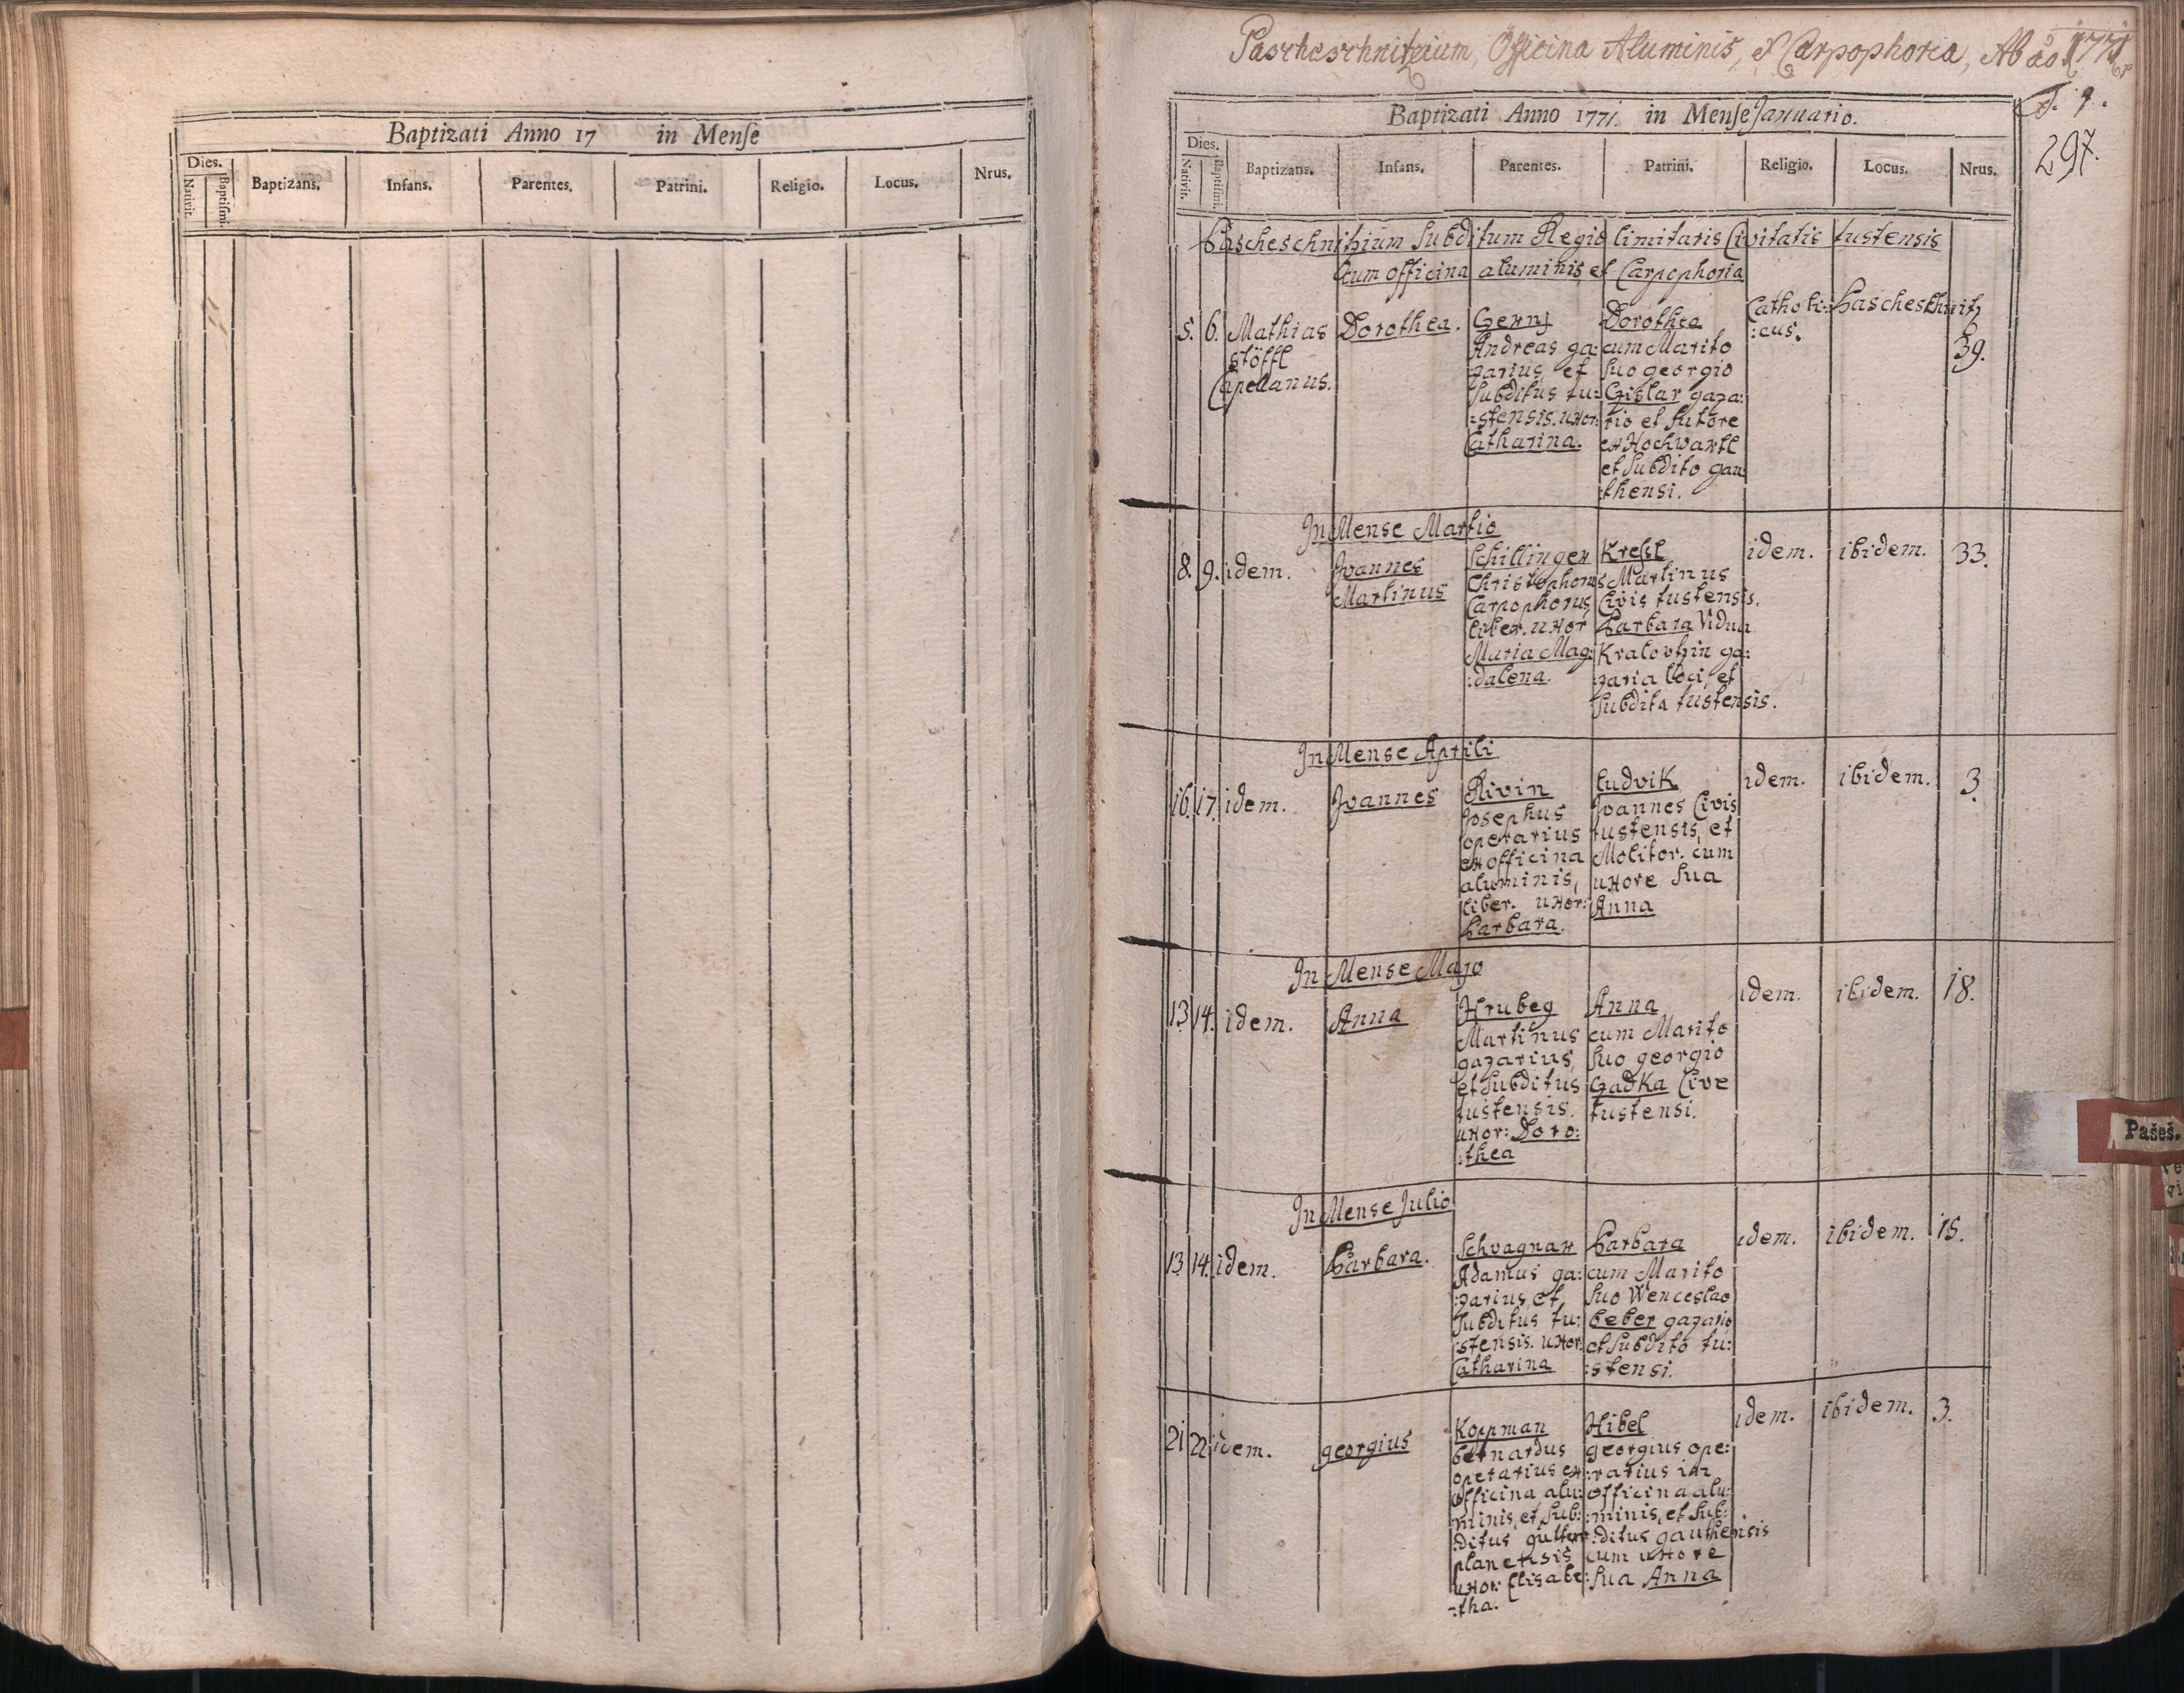 Baptizati Anno 17 in Menſe
Dies.
Nativit.
Baptiſmi.
Baptizans.
Infans.
Parentes.
Patrini.
Religio.
Locus.
Nrus.
Pascheschnitzium, Officina Aluminis, et Carpophoria, Ab ao 1771
F. 1.
297.
Baptizati Anno 1771. in Menſe Januario.
Dies.
Nativit.
Baptiſmi.
Baptizans.
Infans.
Parentes.
Patrini.
Religio.
Locus.
Nrus.
Pascheschnitzium Subditum Regio limitatis Civitatis tustensis
cum officina aluminis, et Carpophoria
5.
6.
Mathias
Stöffl
Capellanus.
Dorothea.
Gerny
Andreas ga:
zarius, et
Subditus tu:
:stensis. uxor:
Catharina.
Dorothea
cum Marito
Suo georgio
Gislar gaza:
rio et Sutore
ex Hochwartl
et Subdito gau
:thensi.
Catholi:
:cus.
Pascheschnitz
39.
In Mense Martio
8.
9.
idem.
Joannes
Martinus
Schillinger
Christophorus
Carpophorus
liber. uxor
Maria Mag:
:dalena.
Kreßl
Martinus
Civis tustensis.
Barbara Vidua
Kralovzin ga:
:zaria loci, et
Subdita tustensis.
idem.
ibidem.
33.
In Mense Aprili
16.
17.
idem.
Joannes
Rivin
Josephus
operarius
ex officina
aluminis,
liber. uxor:
Barbara.
Ludvik
Joannes Civis
tustensis, et
Molitor. cum
uxore Sua
Anna
idem.
ibidem.
3.
In Mense Majo
13.
14.
idem.
Anna
Hrubeg
Martinus
gazarius,
et Subditus
tustensis.
uxor: Doro:
:thea
Anna
cum Marito
Suo georgio
Gadka Cive
tustensi.
idem.
ibidem.
18.
In Mense Julio
13.
14.
idem.
Barbara.
Schvagnar
Adamus ga:
:zarius, et
Subditus tu:
:stensis. uxor:
Catharina
Barbara
cum Marito
Suo Wenceslao
beber gazario
et Subdito tu:
:stensi.
idem.
ibidem.
15.
21.
22.
idem.
georgius
Koppman
bernardus
operarius ex
officina alu:
minis, et Sub:
:ditus gutten
planensis
uxor: Elisabe:
:tha.
Hibel
georgius ope:
:rarius in
officina alu:
:minis, et Sub:
:ditus gauthensis
cum uxore
Sua Anna
idem.
ibidem.
3.
Pašeš.